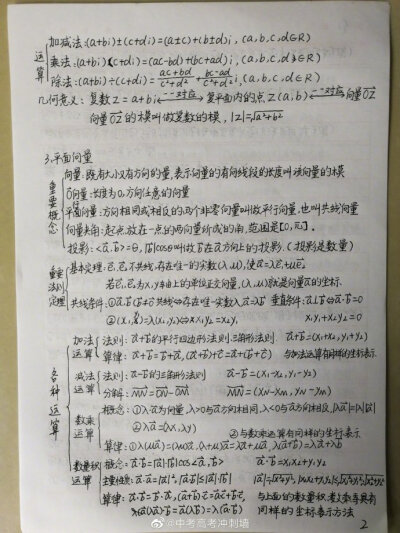 运算
加减法:(a+bi)±(c+di)=(a±c)+(b±d)i,(a,b,c,d∈R)
乘法:(a+bi)(c+di)=(ac-bd)+(bc+ad)i,(a,b,c,d∈R)
除法:(a+bi)÷(c+di)=(ac+bd)/(c²+d²)+(bc-ad)/(c²+d²)i,(a,b,c,d∈R)
几何意义:复数Z=a+bi ⟷一一对应 复平面内的点Z(a,b) ⟷一一对应 向量OZ
向量OZ的模叫做复数的模,|Z|=√(a²+b²)
3.平面向量
重要概念
向量:既有大小又有方向的量,表示向量的有向线段的长度叫该向量的模
0向量:长度为0,方向任意的向量
平行向量:方向相同或相反的两个非零向量叫做平行向量,也叫共线向量
向量夹角:起点放在一点的两向量所成的角,范围是[0,π]。
投影:<a,b>=θ,|b|cosθ叫做b在a方向上的投影.(投影是数量)
重要法则定理
基本定理:e₁,e₂不共线,存在唯一的实数(λ,μ),使a=λe₁+μe₂
若e₁,e₂为x,y轴上的单位正交向量,(λ,μ)就是向量a的坐标.
共线条件:①a,b(b≠0)共线⇔存在唯一实数λ,a=λb 垂直条件:a⊥b⇔a·b=0
②(x₁,y₁)=λ(x₂,y₂)⇔x₁y₂=x₂y₁ x₁x₂+y₁y₂=0
各种运算
加法运算
法则:a+b的平行四边形法则,三角形法则 a+b=(x₁+x₂,y₁+y₂)
算律:a+b=b+a,(a+b)+c=a+(b+c) 与加法运算有同样的坐标表示
减法运算
法则:a-b的三角形法则 a-b=(x₁-x₂,y₁-y₂)
分解:MN=ON-OM MN=(xN-xM,yN-yM)
数乘运算
概念:①λa为向量,λ>0与a方向相同,λ<0与a方向相反,|λa|=|λ||a|
②λa=(λx,λy)
②与数乘运算有同样的坐标表示
算律:①λ(μa)=(λμ)a,(λ+μ)a=λa+μa,λ(a+b)=λa+λb
数量积运算
概念:a·b=|a|·|b|cos<a,b> a·b=x₁x₂+y₁y₂
主要性质:a·a=|a|²,|a·b|≤|a|·|b| |x₁x₂+y₁y₂|≤√(x₁²+y₁²)√(x₂²+y₂²)
算律:a·b=b·a,(a+b)·c=a·c+b·c, 与上面的数量积、数乘等具有
λ(a·b)=(λa)·b=a·(λb) 同样的坐标表示方法
2
@中考高考冲刺墙